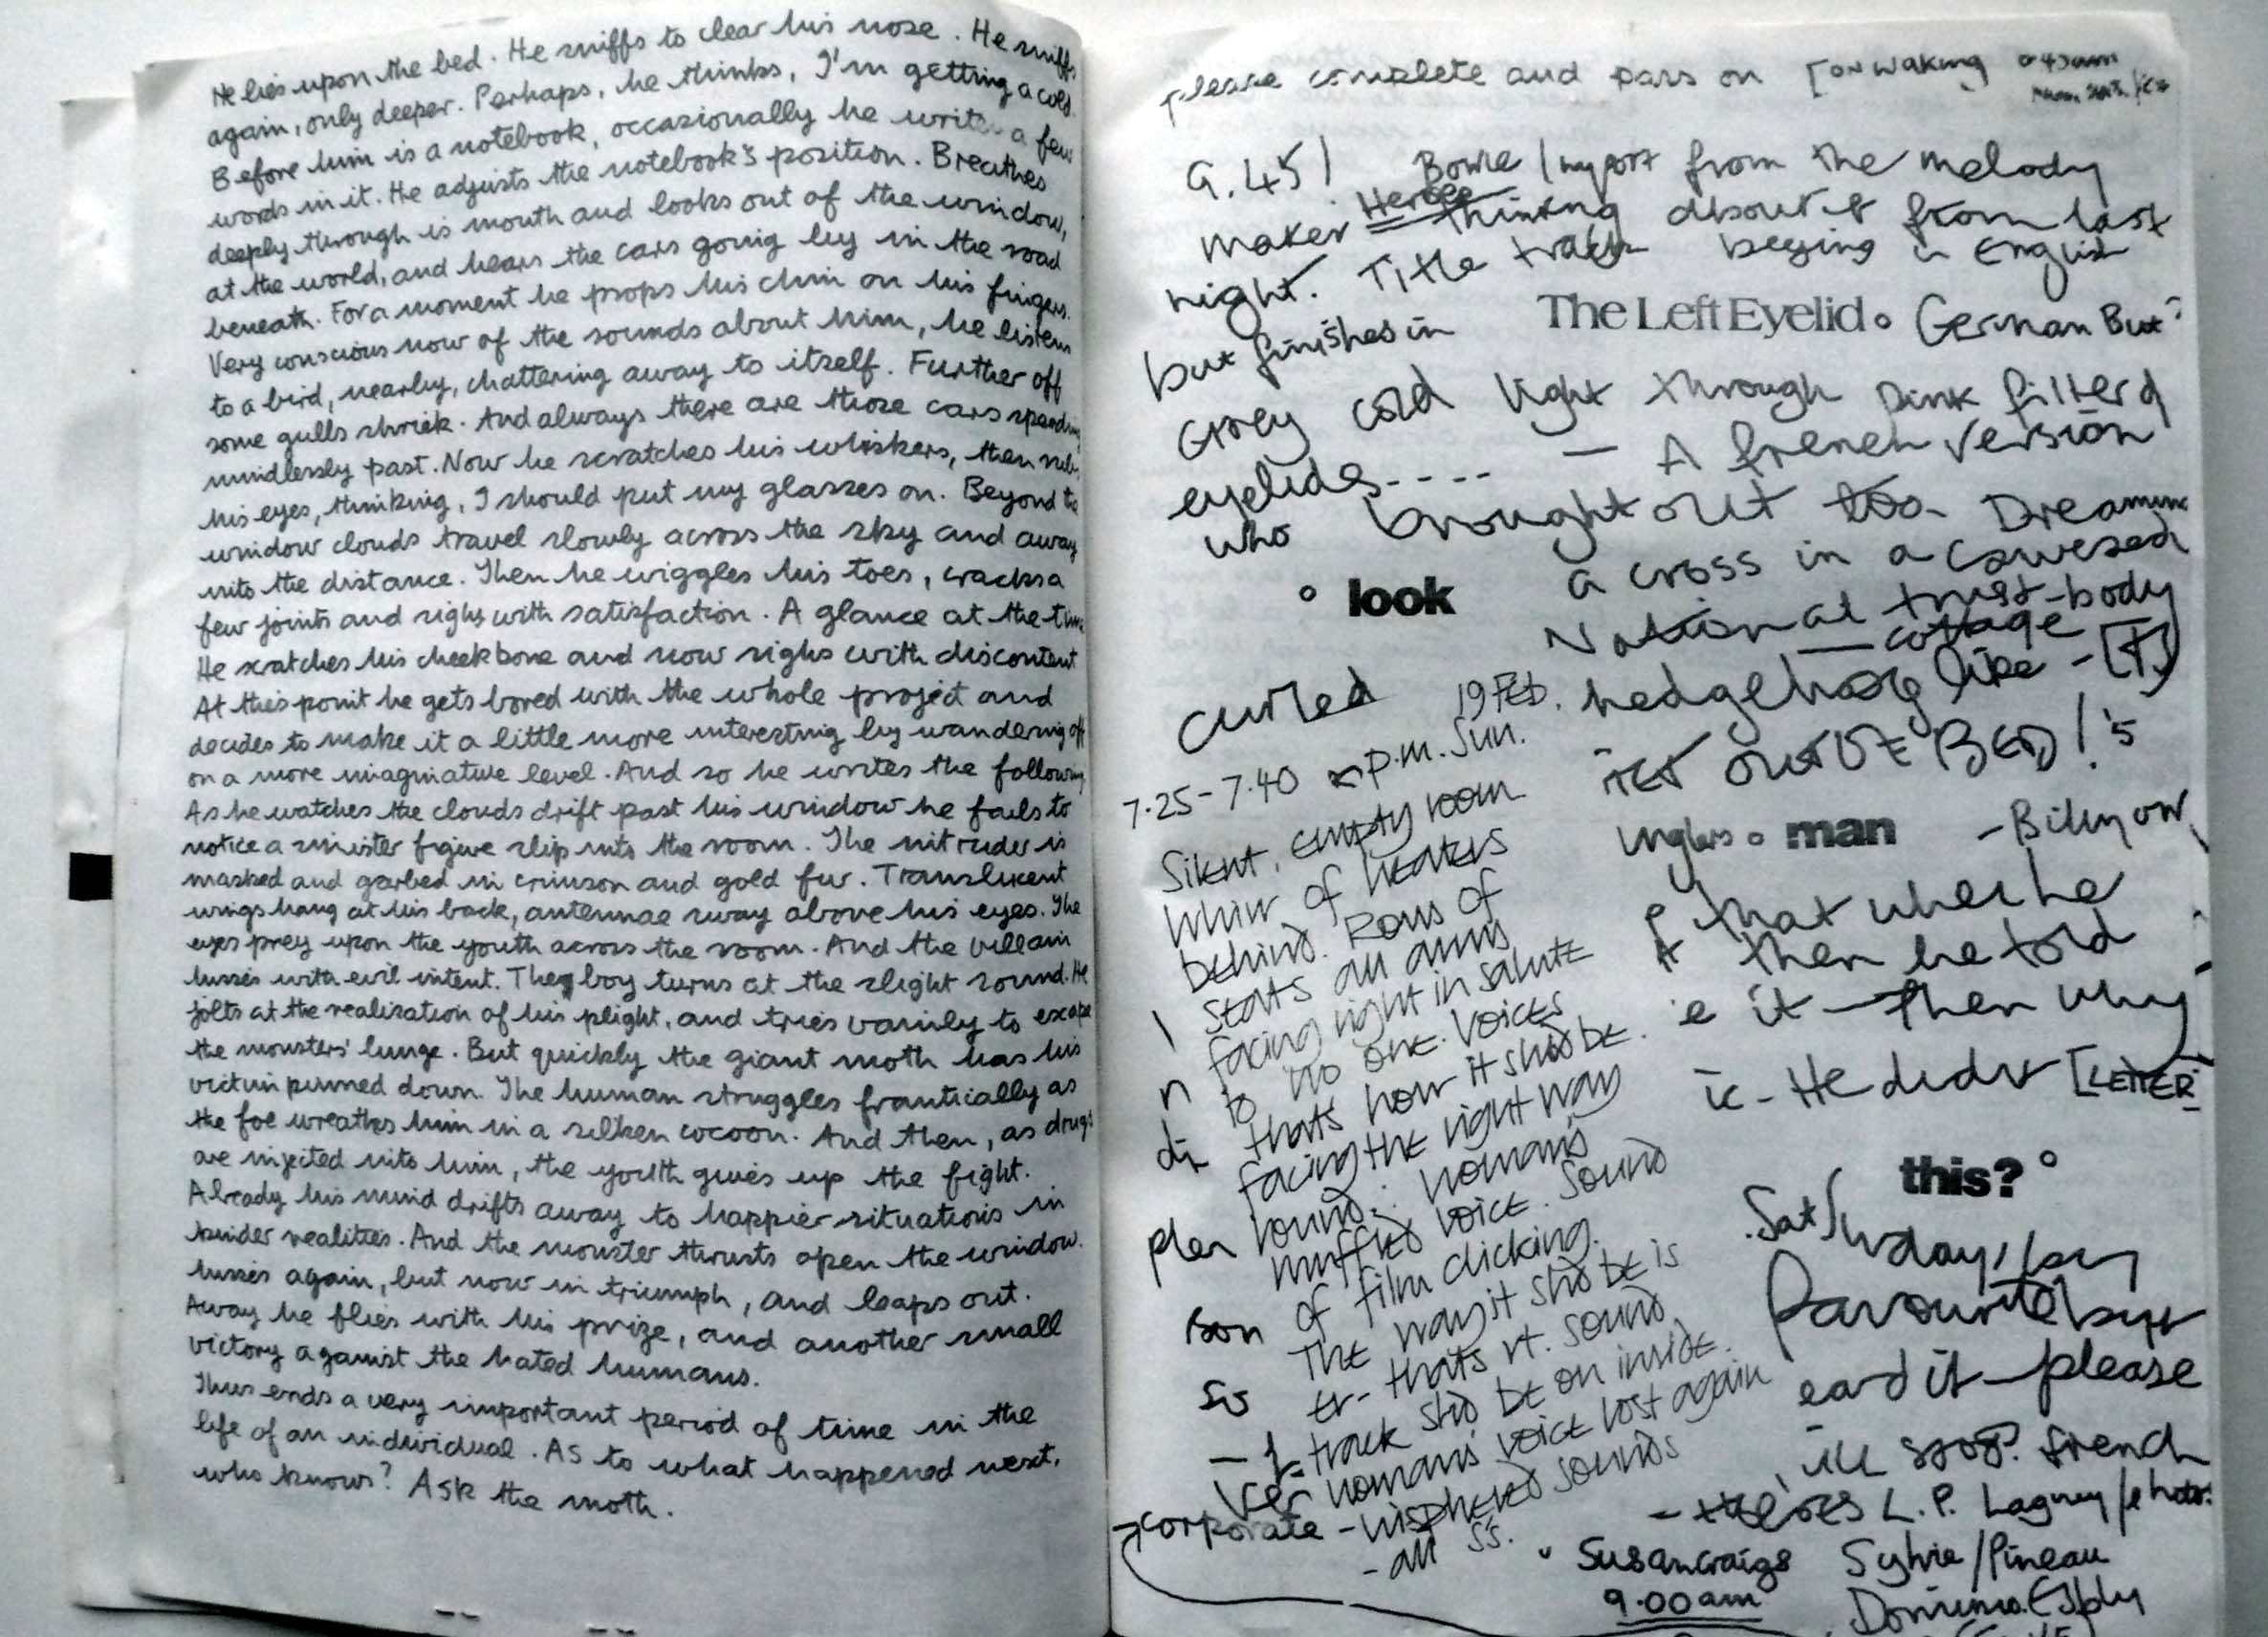 He lies upon the bed. He sniffs to clear his nose. He sniffs
again, only deeper. Perhaps, he thinks, I'm getting a cold.
Before him is a notebook, occasionally he writes a few
words in it. He adjusts the notebook's position. Breathes
deeply through is mouth and looks out of the window,
at the world, and hears the cars going by in the road
beneath. For a moment he props his chin on his fingers.
Very conscious now of the sounds about him, he listens
to a bird, nearby, chattering away to itself. Further off
some gulls shriek. And always there are those cars speeding
mindlessly past. Now he scratches his whiskers, then rubs
his eyes, thinking, I should put my glasses on. Beyond the
window clouds travel slowly across the sky and away
into the distance. Then he wiggles his toes, cracks a
few joints and sighs with satisfaction. A glance at the time
He scratches his cheekbone and now sighs with discontent
At this point he gets bored with the whole project and
decides to make it a little more interesting by wandering off
on a more imaginative level. And so he writes the following
As he watches the clouds drift past his window he fails to
notice a sinister figure slip into the room. The intruder is
masked and garbed in crimson and gold fur. Translucent
wings hang at his back, antennae sway above his eyes. The
eyes prey upon the youth across the room. And the villain
hisses with evil intent. The boy turns at the slight sound. He
jolts at the realisation of his plight, and tries vainly to escape
the monsters' lunge. But quickly the giant moth has his
victim pinned down. The human struggles frantically as
the foe wreathes him in a silken cocoon. And then, as drugs
are injected into him, the youth gives up the fight.
Already his mind drifts away to happier situations in
kinder realities. And the monster thrusts open the window.
hisses again, but now in triumph, and leaps out.
Away he flies with his prize, and another small
victory against the hated humans.
Thus ends a very important period of time in the
life of an individual. As to what happened next,
who knows? Ask the moth.
please complete and pass on [on waking
9.45! Bowie import from the melody
maker Heroes thinking about it from last
night. Title track begins in English
but finishes in The Left Eyelid. German But
Grey cold light through pink filterd
eyelids.... — A french version
who brought out too Dreaming
a cross in a
look
National trust-body
cottage
curled hedgehog like
19 Feb.
7.25-7.40 p.m. Sun.
OUT OF BED!
Silent, empty room
whirr of heaters
behind. Rows of
seats all arms
facing right in salute
to no one. Voices
thats how it shld be.
facing the right way
round. Womans
muffled voice. Sound
of film clicking.
The way it shld be is
er- thats rt. Sound
track shld be on inside.
womans voice lost again
- wisphered sounds
- all s's.
corporate
man
that when he
then he told
it — then why
He didnt [LETTER]
this?
Sat/Sunday
Favourite
it — please
french
L.P.
Susan Craigs Sylvie/Pineau
9.00am